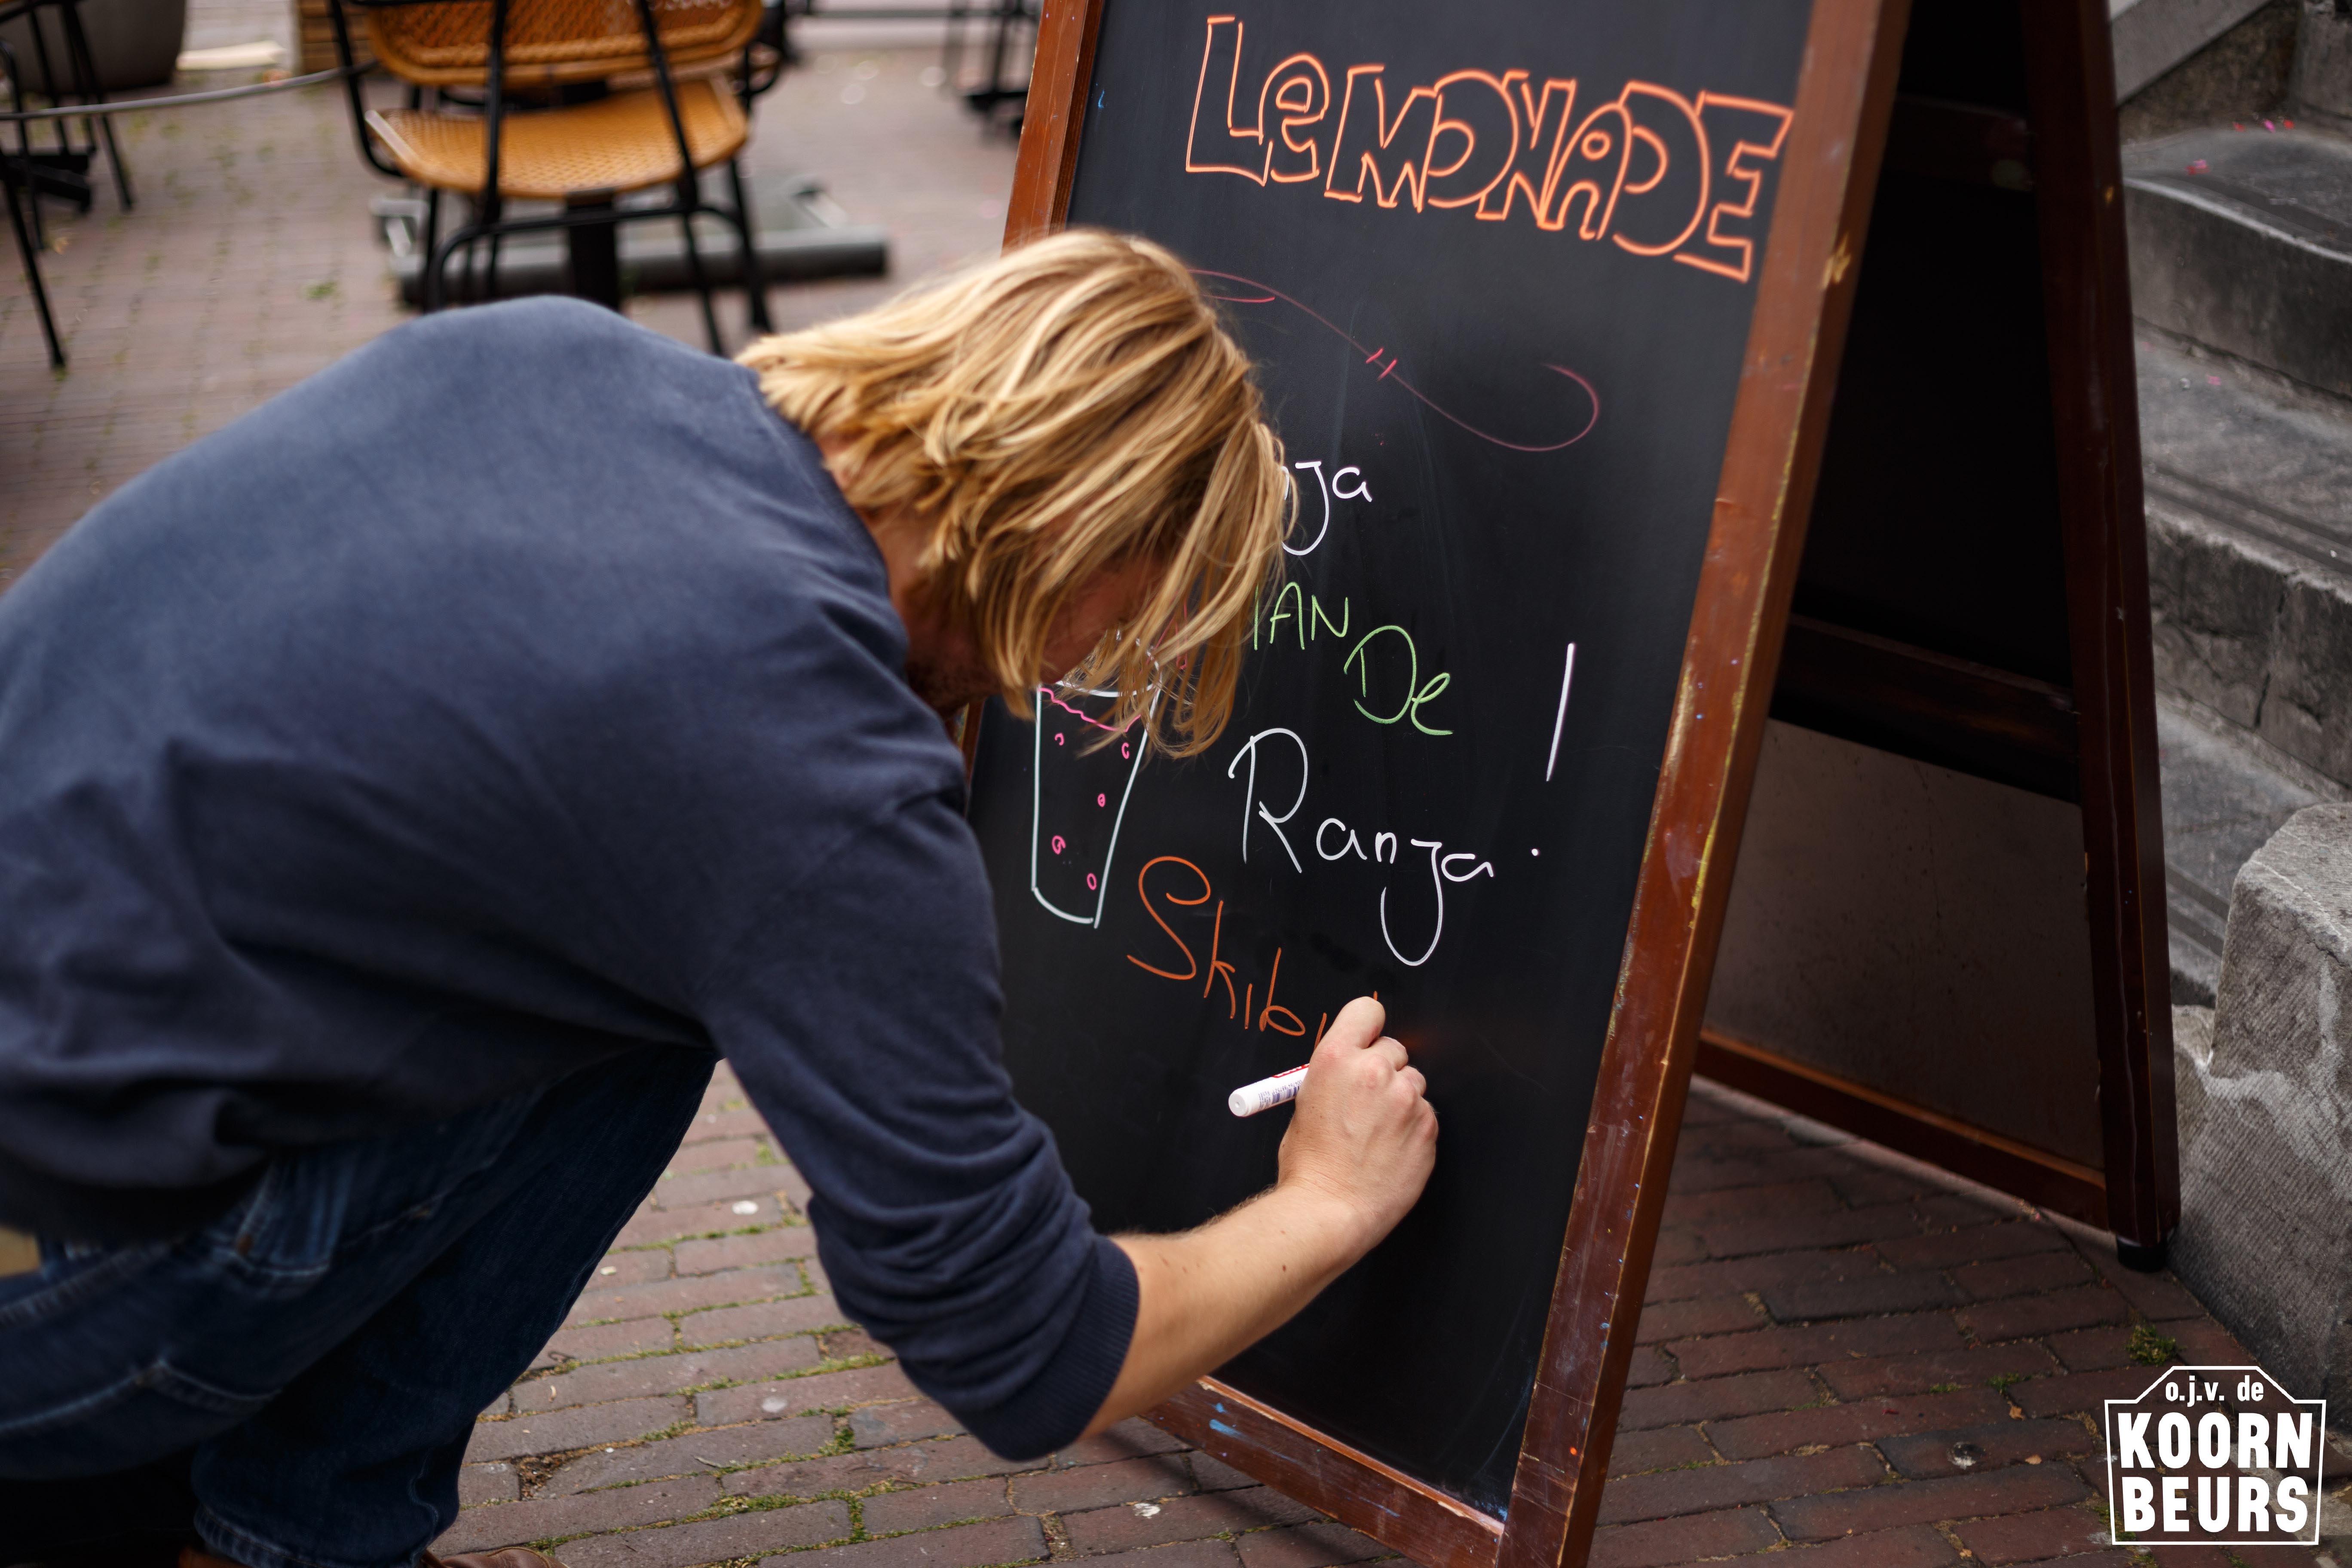 LeMONADE
VAN
De
Ranja!
o.j.v. de
KOORN
BEURS